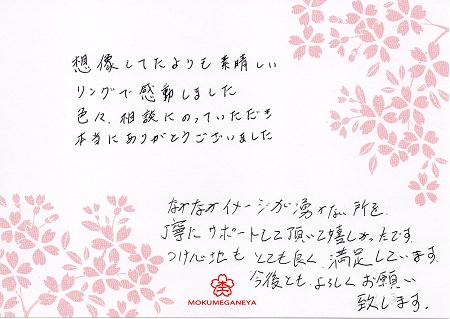 想像してたよりも素晴しい
リングで感動しました
色々、相談にのっていただき
本当にありがとうございました
なかなかイメージが湧かない所を
丁寧にサポートして頂いて嬉しかったです。
つけ心地もとても良く満足しています。
今後とも よろしくお願い
致します。
MOKUMEGANEYA